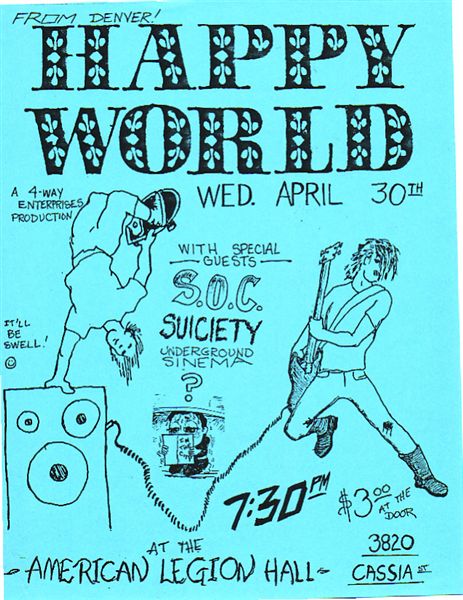 FROM DENVER!
HAPPY
WORLD
WED. APRIL 30TH
A 4-WAY
ENTERPRISES
PRODUCTION
WITH SPECIAL
GUESTS
S.O.C.
SUICIETY
UNDERGROUND
SINEMA
?
IT'LL
BE
SWELL!
7:30 PM
$3.00 AT THE DOOR
AT THE
- AMERICAN LEGION HALL -
3820
CASSIA ST.